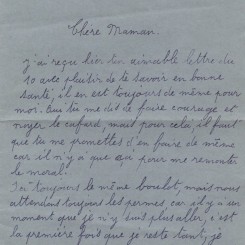 Chere Maman.
j'ai reçu hier ton aimable lettre du
10 avec plaisir de te savoir en bonne
santé, il en est toujours de même pour
moi. tu me dit de faire courage et
noyer le cafard, mais pour celà, il faut
que tu me promettes d'en faire de même
car il n'y a que ça pour me remonter
le moral.
Ici toujours le même boulot, mais nous
attendons toujours les permes, car il y a un
moment que je n'y suis plus aller, c'est
la première fois que je reste tant, je